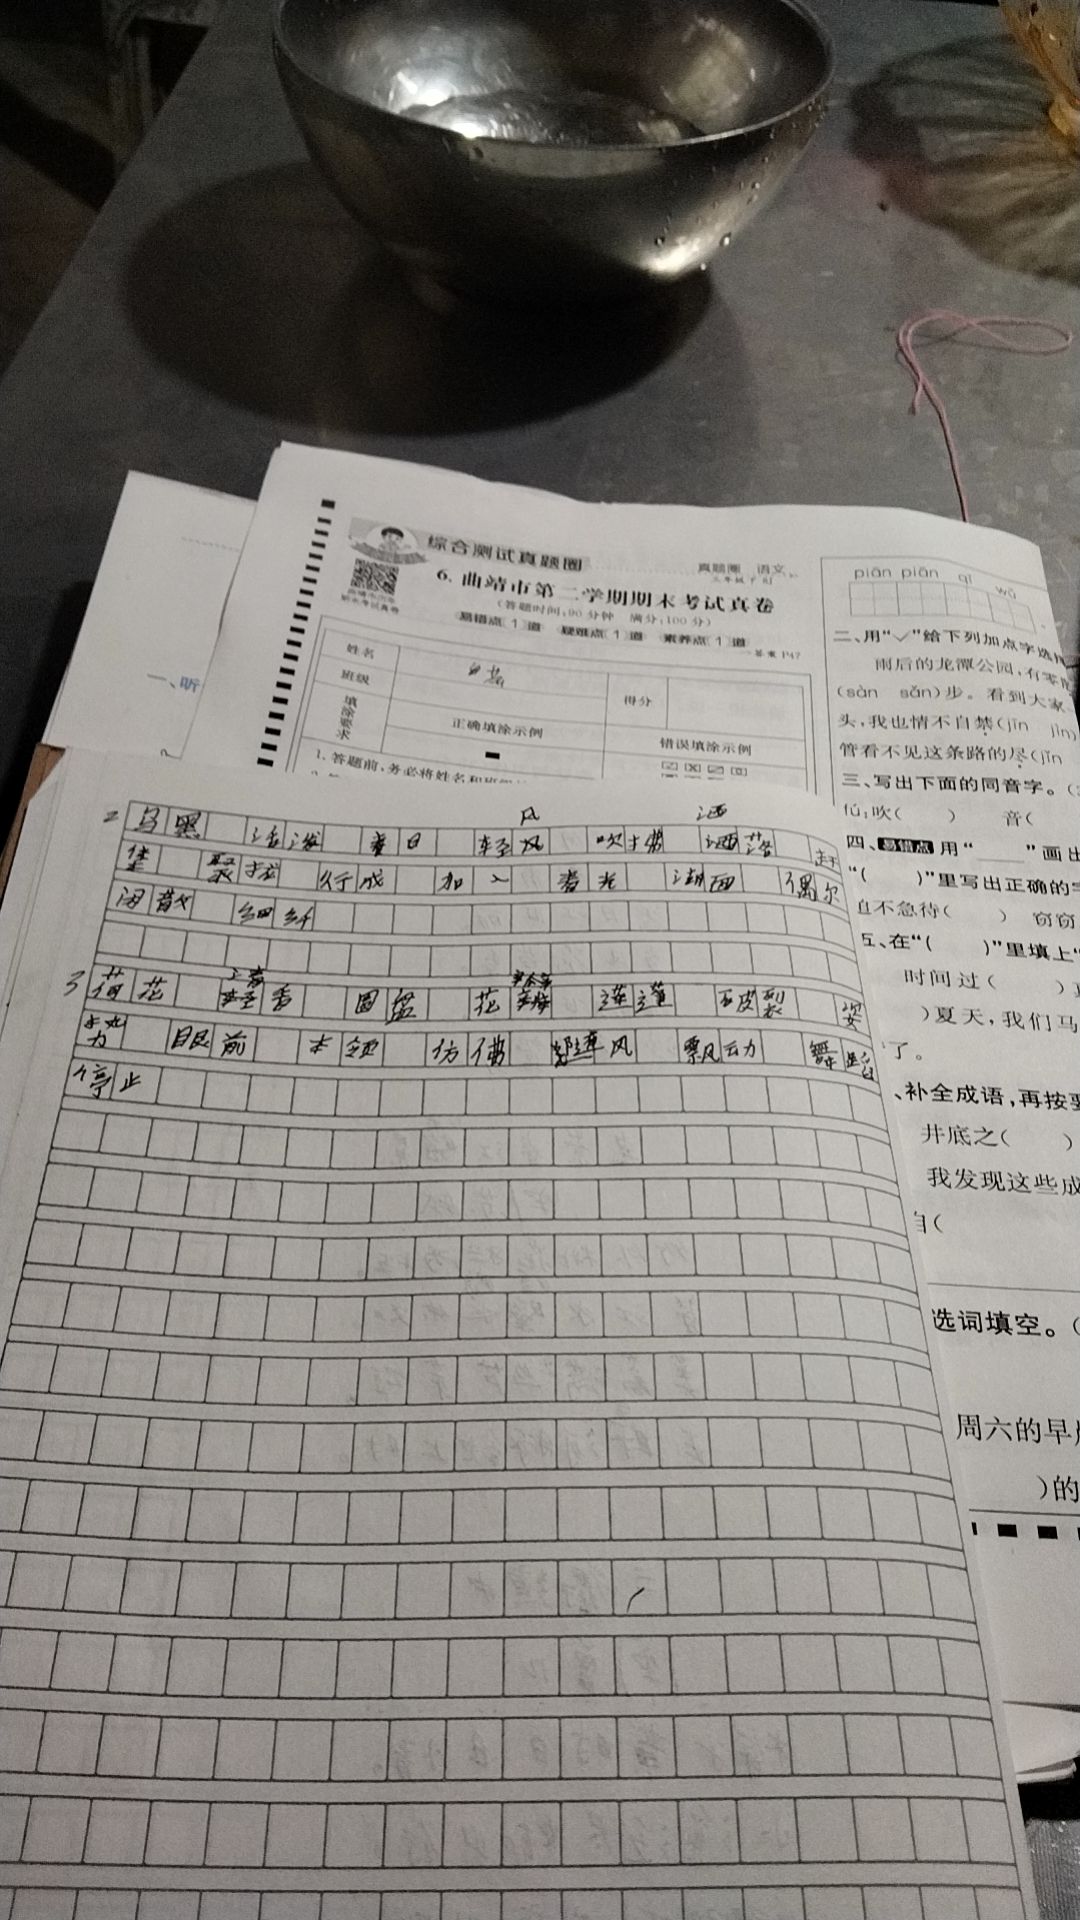 综合测试真题圈
真题圈 语文
三年级下 RJ
6. 曲靖市第二学期期末考试真卷
(答题时间:90分钟 满分:100分)
易错点(1)道 疑难点(1)道 素养点(1)道
答案P47
姓名
班级
得分
填涂要求
正确填涂示例
错误填涂示例
1. 答题前,务必将姓名和
一、听
piān piān qī wǔ
二、用“✓”给下列加点字选择
雨后的龙潭公园,有零
(sàn sǎn)步。看到大家
头,我也情不自禁(jīn jìn)
管看不见这条路的尽(jǐn
三、写出下面的同音字。(
fú:吹( ) 音(
四、易错点 用“ ”画出
“( )”里写出正确的字
不急待( ) 窃窃
五、在“( )”里填上“
时间过( )
)夏天,我们马
了。
、补全成语,再按要
井底之( )
我发现这些成
自(
选词填空。(
周六的早
)的
风 洒
2 乌黑 活泼 春日 轻风 吹拂 洒落
堡 聚拢 行成 加入 春光 湖面 偶尔
闲散 细纤
3 荷花 香 圆盘 花 莲蓬 破裂 姿
势 眼前 本领 仿佛 风 飘动 舞蹈
停止